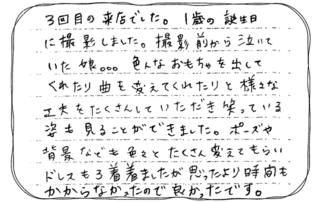 3回目の来店でした。1歳の誕生日
に撮影しました。撮影前から泣いて
いた娘。。。色んなおもちゃを出して
くれたり曲を変えてくれたりと様々な
工夫をたくさんしていただき笑っている
姿も見ることができました。ポーズや
背景なども色々とたくさん変えてもらい
ドレスも3着着ましたが思ったより時間も
かからなかったので良かったです。